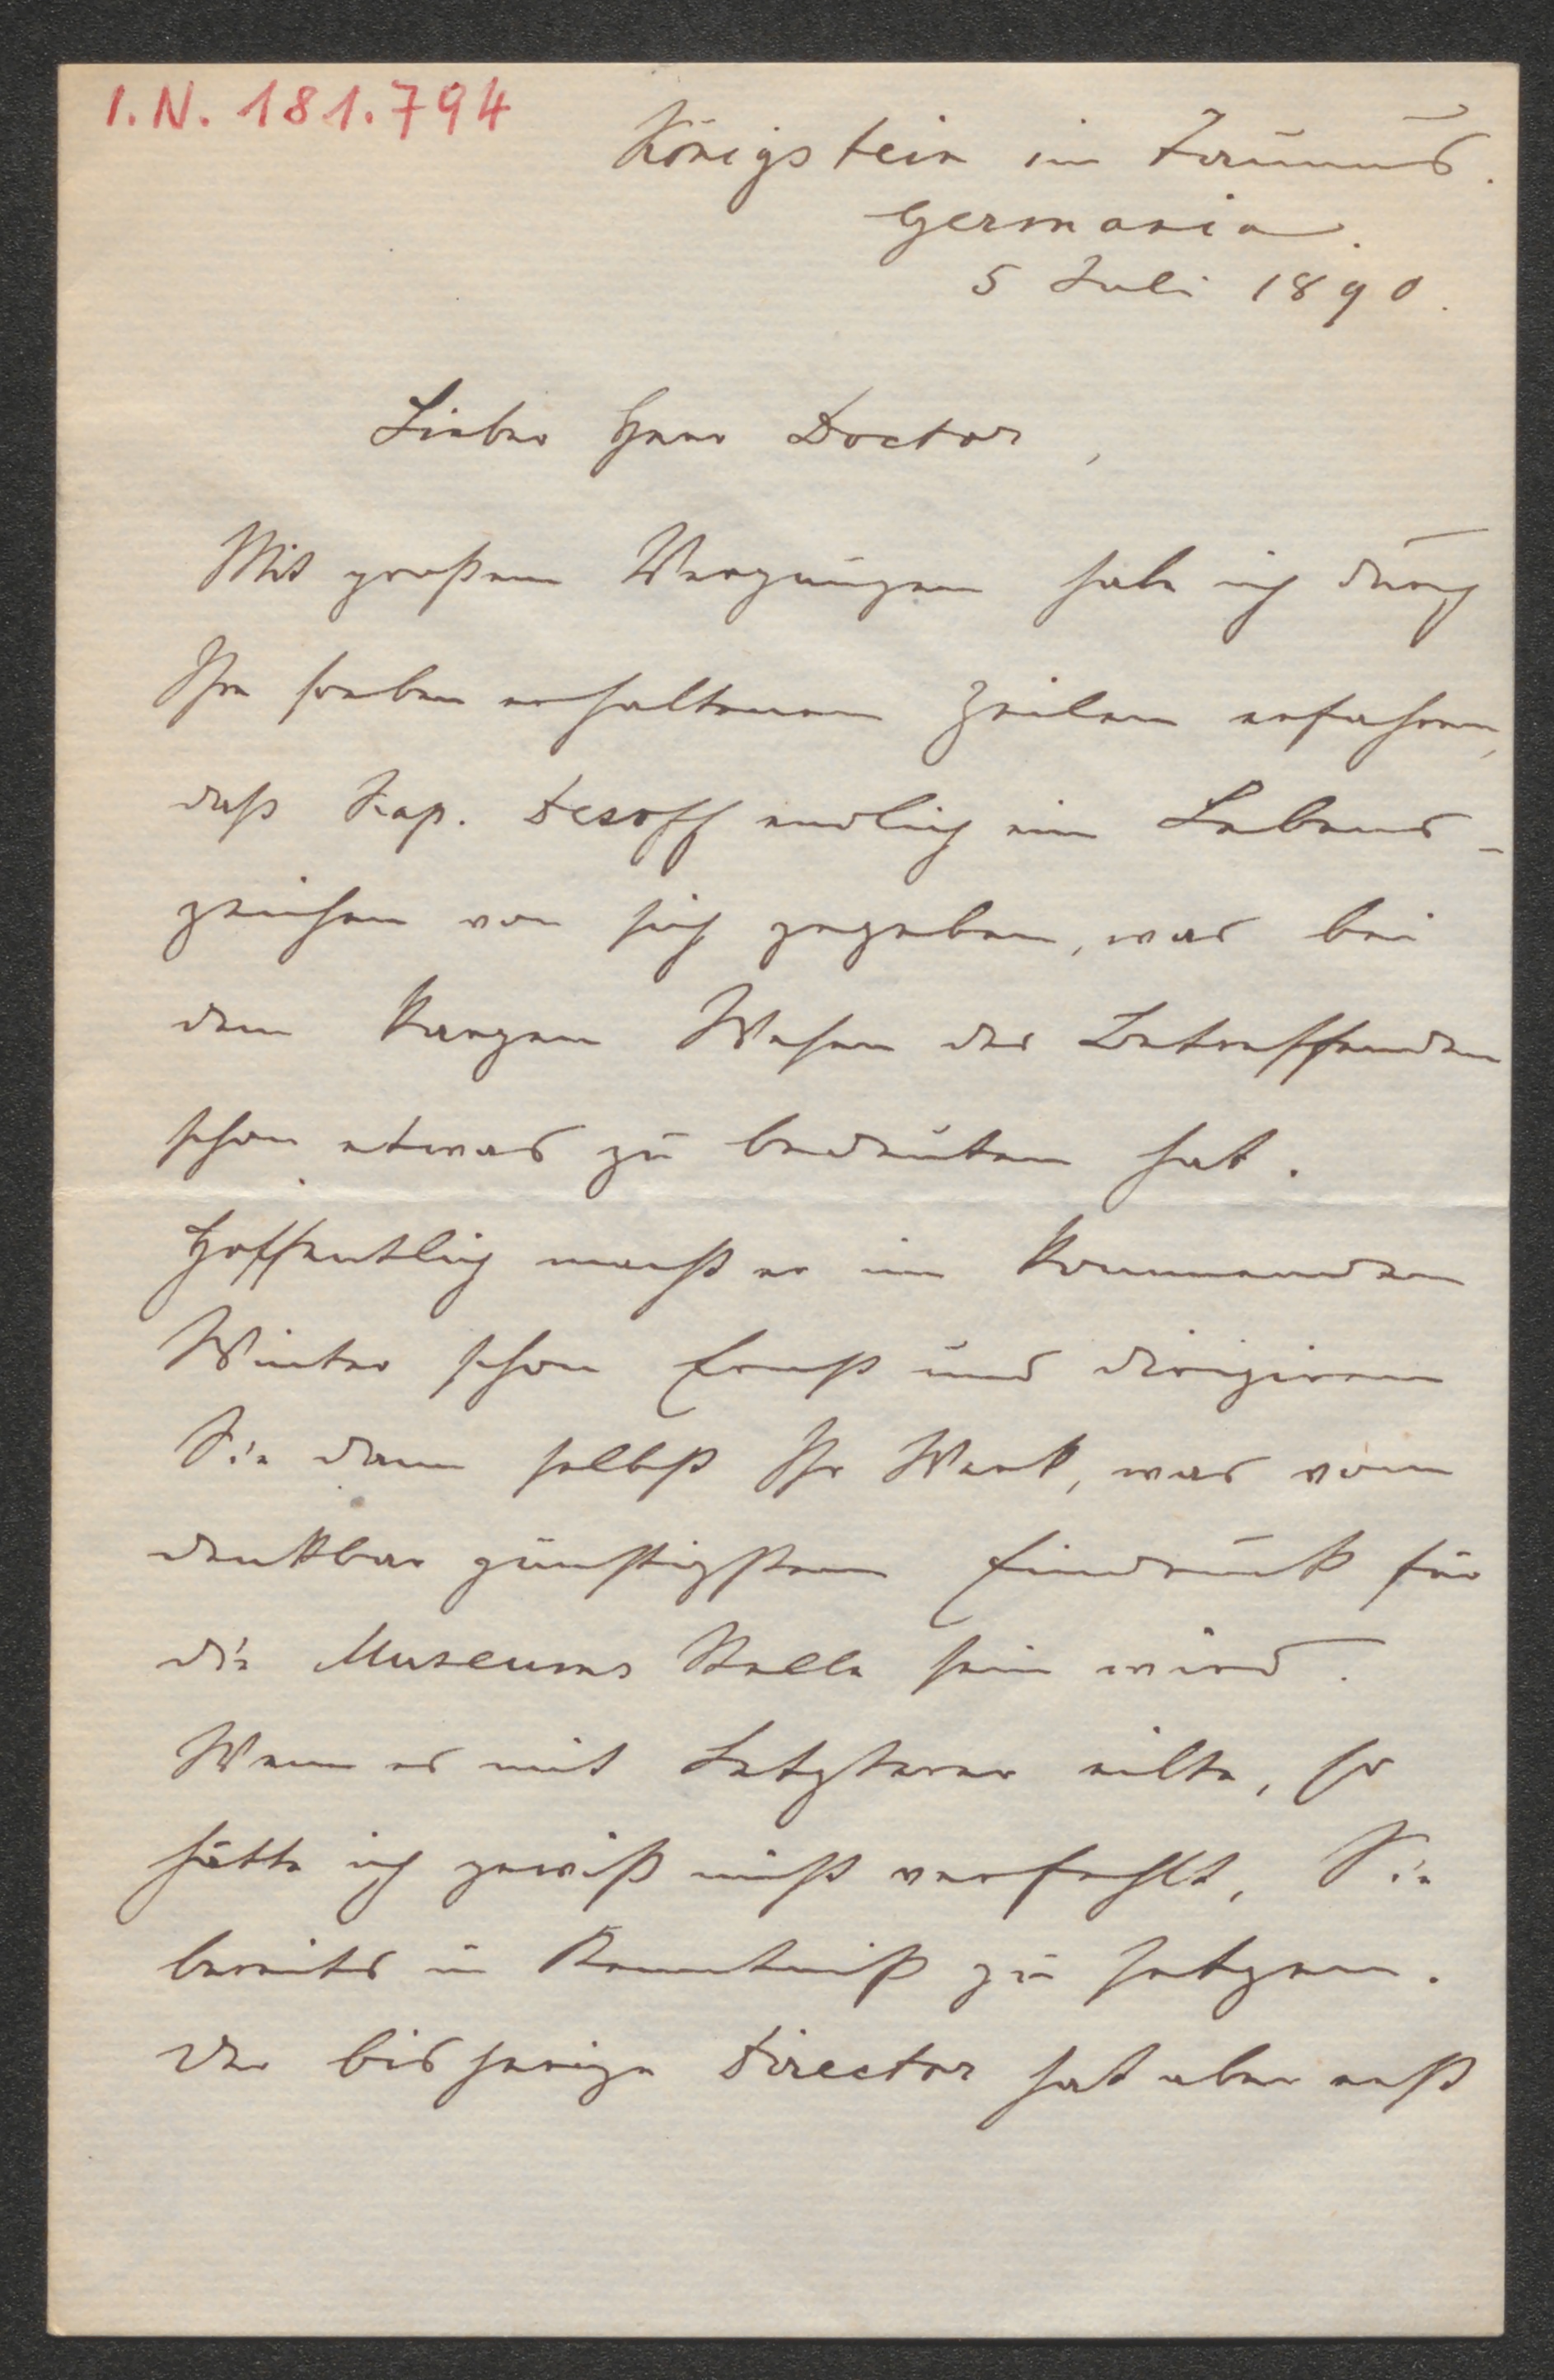 I.N. 181.794
Königstein im Taunus.
Germania.
5 Juli 1890.
Lieber Herr Doctor,
Mit großem Vergnügen habe ich durch
Ihre soeben erhaltenen Zeilen erfahren,
daß Kap. Desoff endlich ein Lebens-
zeichen von sich gegeben, was bei
dem kargen Wesen des Betreffenden
schon etwas zu bedeuten hat.
Hoffentlich macht er im kommenden
Winter schon Ernst und dirigiren
Sie dann selbst Ihr Werk, was vom
denkbar günstigsten Eindruck für
die Museums Stelle sein wird.
Wenn es mit Letzterer eilte, so
hätte ich gewiß nicht verfehlt, Sie
bereits in Kenntniß zu setzen.
Der bisherige Director hat aber erst